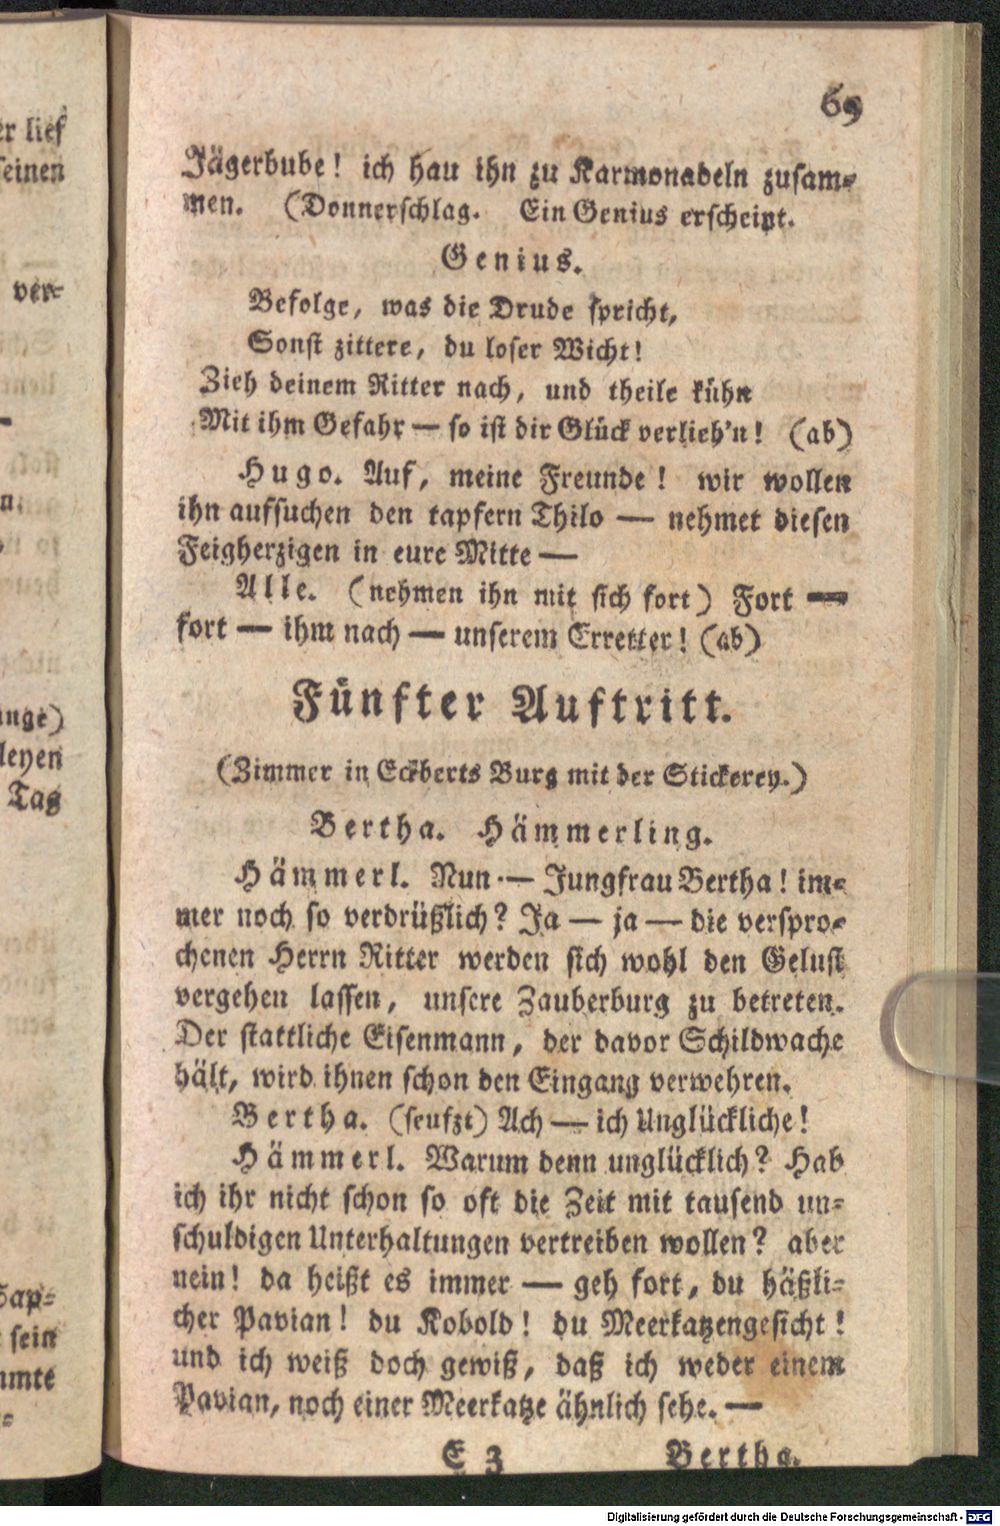 er lief
seinen
ver-
n.
ange)
leyen
Tag
sein
mmte
69
Jägerbube! ich hau ihn zu Karmonadeln zusam-
men. (Donnerschlag. Ein Genius erscheint.
Genius.
Befolge, was die Drude spricht,
Sonst zittere, du loser Wicht!
Zieh deinem Ritter nach, und theile kühn
Mit ihm Gefahr — so ist dir Glück verlieh'n! (ab)
Hugo. Auf, meine Freunde! wir wollen
ihn aufsuchen den tapfern Thilo — nehmet diesen
Feigherzigen in eure Mitte —
Alle. (nehmen ihn mit sich fort) Fort —
fort — ihm nach — unserem Erretter! (ab)
Fünfter Auftritt.
(Zimmer in Eckberts Burg mit der Stickerey.)
Bertha. Hämmerling.
Hämmerl. Nun — Jungfrau Bertha! im-
mer noch so verdrüßlich? Ja — ja — die verspro-
chenen Herrn Ritter werden sich wohl den Gelust
vergehen lassen, unsere Zauberburg zu betreten.
Der stattliche Eisenmann, der davor Schildwache
hält, wird ihnen schon den Eingang verwehren.
Bertha. (seufzt) Ach — ich Unglückliche!
Hämmerl. Warum denn unglücklich? Hab
ich ihr nicht schon so oft die Zeit mit tausend un-
schuldigen Unterhaltungen vertreiben wollen? aber
nein! da heißt es immer — geh fort, du häßli-
cher Pavian! du Kobold! du Meerkatzengesicht!
und ich weiß doch gewiß, daß ich weder einem
Pavian, noch einer Meerkatze ähnlich sehe. —
E 3 Bertha.
Digitalisierung gefördert durch die Deutsche Forschungsgemeinschaft - DFG